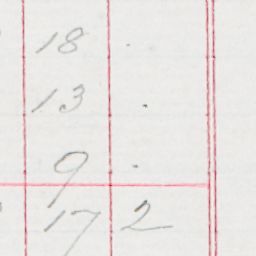 18 .
13 .
9 .
17 2